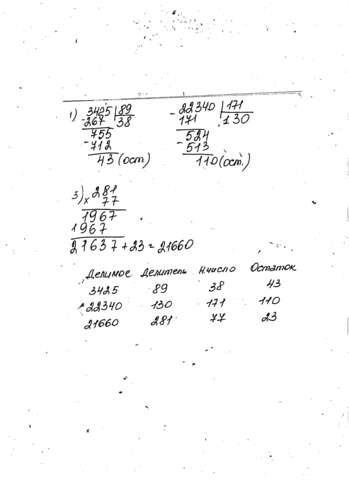 1) 3425 | 89
- 267 | 38
755
- 712
43 (ост)
- 22340 | 171
171 | 130
524
- 513
110 (ост.)
3) x 281
77
1967
1967
21637 + 23 = 21660
Делимое Делитель Н.число Остаток
3425 89 38 43
22340 130 171 110
21660 281 77 23